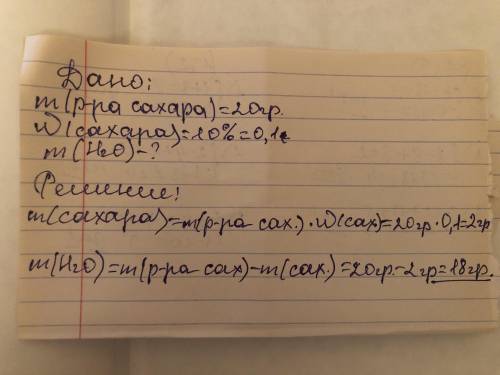 Дано:
m(р-ра сахара)=20гр.
W(сахара)=10%=0,1
m(H2O)-?
Решение:
m(сахара)=m(р-ра сах.)·W(сах)=20гр·0,1=2гр
m(H2O)=m(р-ра сах)-m(сах.)=20гр.-2гр=18гр.